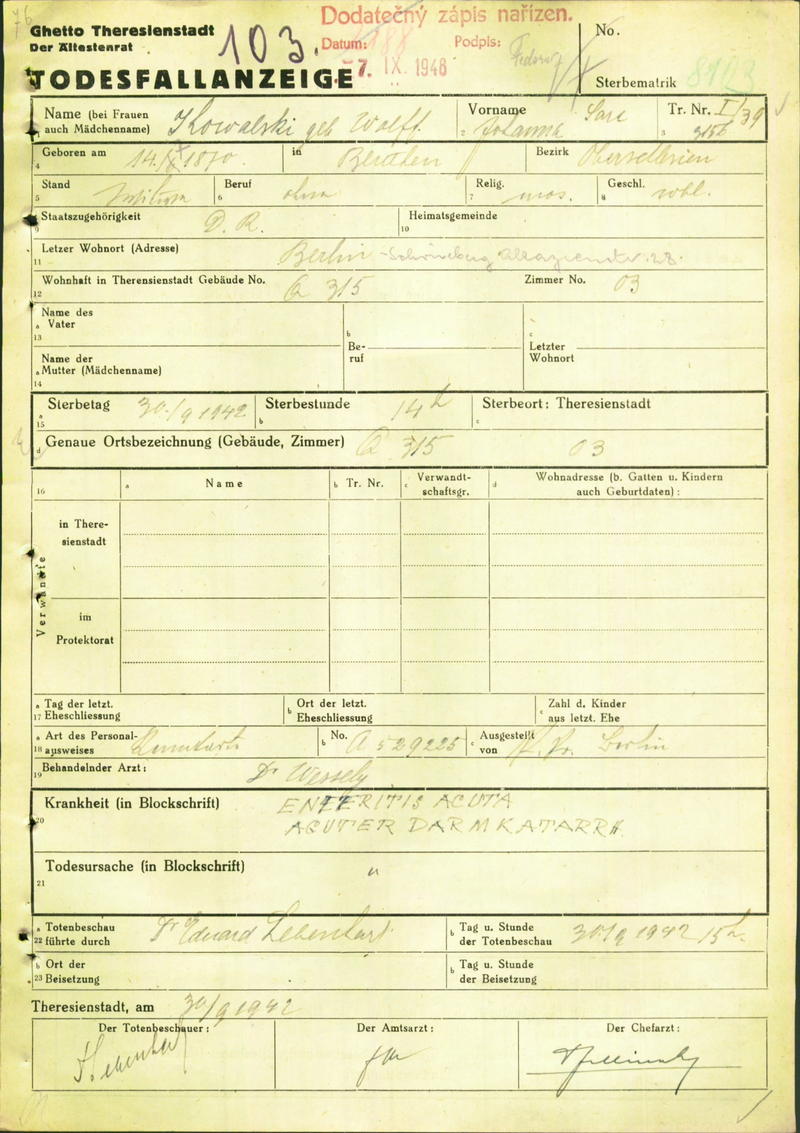 Dodatečný zápis nařízen.
Datum: 7. IX. 1948 Podpis:
103.
Ghetto Theresienstadt
Der Ältestenrat
TODESFALLANZEIGE
No.
Sterbematrik
Name (bei Frauen auch Mädchenname) Kowalski geb Wolff
Vorname Johanna Sara
Tr. Nr. I/39
4 Geboren am 1870 in Beuthen Bezirk Oberschlesien
5 Stand Witwe 6 Beruf ohne 7 Relig. mos. 8 Geschl. wbl.
9 Staatszugehörigkeit D. R. 10 Heimatsgemeinde
11 Letzer Wohnort (Adresse) Berlin - Schöneberg
12 Wohnhaft in Theresienstadt Gebäude No. Q 315 Zimmer No. 03
a 13 Name des Vater
b Beruf
c Letzter Wohnort
a 14 Name der Mutter (Mädchenname)
a 15 Sterbetag 30./9 1942 b Sterbestunde 14h c Sterbeort: Theresienstadt
d Genaue Ortsbezeichnung (Gebäude, Zimmer) Q 315 03
16 a Name b Tr. Nr. c Verwandtschaftsgr. d Wohnadresse (b. Gatten u. Kindern auch Geburtdaten) :
Verwandte
in Theresienstadt
im Protektorat
a 17 Tag der letzt. Eheschliessung b Ort der letzt. Eheschliessung c Zahl d. Kinder aus letzt. Ehe
a 18 Art des Personalausweises Kennkarte b No. A 529225 c Ausgestellt von Berlin
19 Behandelnder Arzt: Dr Wessely
20 Krankheit (in Blockschrift) ENTERITIS ACUTA
ACUTER DARMKATARRH.
21 Todesursache (in Blockschrift) "
a 22 Totenbeschau führte durch Dr Eduard b Tag u. Stunde der Totenbeschau 30./9 1942 15h
b 23 Ort der Beisetzung b Tag u. Stunde der Beisetzung
Theresienstadt, am 30/9 1942
Der Totenbeschauer : Der Amtsarzt : Der Chefarzt :